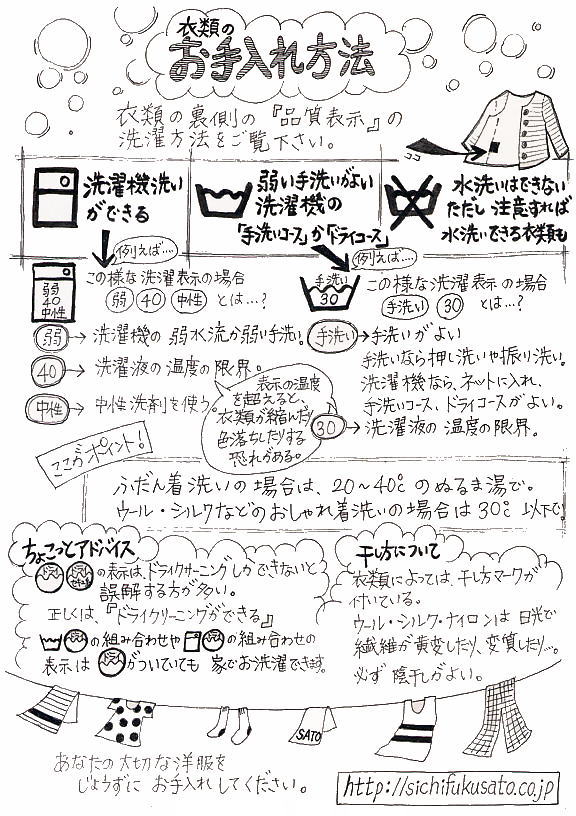 衣類の
お手入れ方法
衣類の裏側の『品質表示』の
洗濯方法をご覧下さい。
洗濯機洗い
ができる
弱い手洗いがよい
洗濯機の
「手洗いコース」か「ドライコース」
水洗いはできない
ただし 注意すれば
水洗いできる衣類も
例えば….
弱
40
中性
この様な洗濯表示の場合
弱 40 中性 とは…?
弱→洗濯機の 弱水流か弱い手洗い。
40→洗濯液の温度の限界。
中性→中性洗剤を使う。
例えば….
手洗い
30
この様な洗濯表示の場合
手洗い 30 とは…?
手洗い→手洗いがよい
手洗いなら押し洗いや振り洗い。
洗濯機なら、ネットに入れ、
手洗いコース、ドライコースがよい。
30→洗濯液の 温度の限界。
表示の温度
を超えると、
衣類が縮んだり
色落ちしたりする
恐れがある。
ここがポイント!
ふだん着洗いの場合は、20〜40℃のぬるま湯で。
ウール・シルクなどのおしゃれ着洗いの場合は30℃以下で
ちょこっとアドバイス
の表示は、ドライクリーニングしかできないと
誤解する方が多い。
正しくは、『ドライクリーニングができる』
の組み合わせや の組み合わせの
表示は がついていても 家でお洗濯できます。
干し方について
衣類によっては、干し方マークが
付いている。
ウール・シルク・ナイロンは 日光で
繊維が黄変したり、変質したり…。
必ず 陰干しがよい。
SATO
あなたの大切な洋服を
じょうずに お手入れしてください。
http://sichifukusato.co.jp